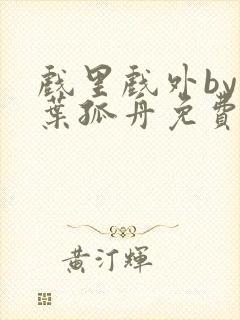 戲里戲外by
葉孤舟免費
黃汀輝